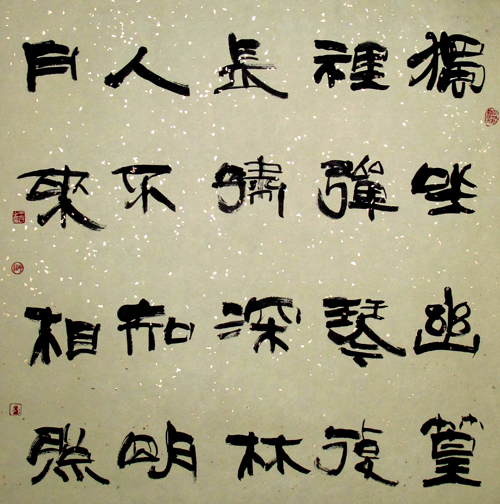 獨坐幽篁
裡彈琴復
長嘯深林
人不知明
月來相照